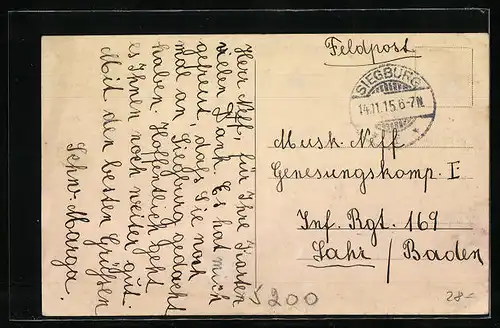 Feldpost.
SIEGBURG
14.11.15.6-7N.
Herr Neff, für Ihre Karten
vielen Dank. Es hat mich
gefreut, dass Sie noch
mal an Siegburg gedacht
haben. Hoffentlich geht
es Ihnen noch weiter gut.
Mit den besten Grüssen
Schw. Marga.
Musk. Neff
Genesungskomp. I
Inf. Rgt. 169
Lahr / Baden
200
28-